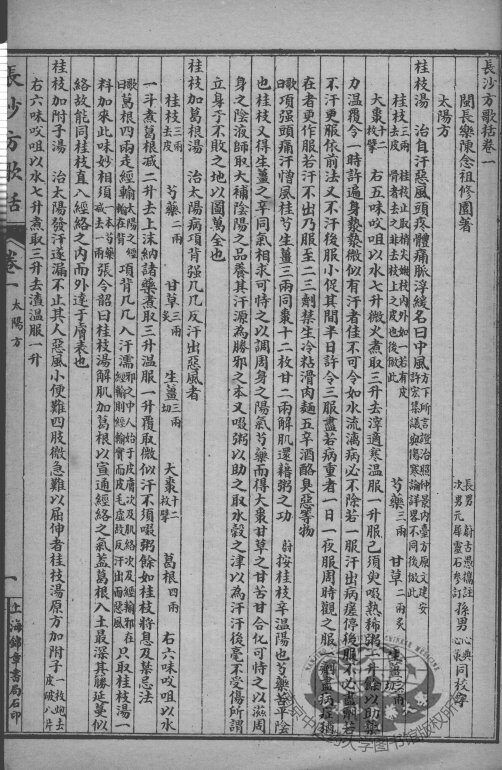 長沙方歌括卷一
閩長樂陳念祖修園著
長男 蔚古愚擬註 孫男心典
次男元犀靈石參訂 心蘭 同校字
太陽方
桂枝湯 治自汗惡風頭疼體痛脈浮緩名曰中風 方下所言證治照仲景內臺方原文建安許宏集議與傷寒論詳畧不同後倣此
桂枝三兩去皮 桂枝止取梢尖嫩枝內外如一若有皮骨者去之非去枝上之皮也後倣此 芍藥三兩 甘草二兩炙 生薑三兩切
大棗十二枚擘 右五味㕮咀以水七升微火煮取三升去滓適寒溫服一升服已須臾啜熱稀粥一升餘以助藥
力溫覆令一時許遍身漐漐微似有汗者佳不可令如水流漓病必不除若一服汗出病瘥停後服不必盡劑若
不汗更服依前法又不汗後服小促其間半日許令三服盡若病重者一日一夜服周時觀之服一劑盡病證猶
在者更作服若汗不出乃服至二三劑禁生冷粘滑肉麵五辛酒酪臭惡等物
歌曰項强頭痛汗憎風桂芍生薑三兩同棗十二枚甘二兩解肌還藉粥之功 蔚按桂枝辛溫陽也芍藥苦平陰
也桂枝又得生薑之辛同氣相求可恃之以調周身之陽氣芍藥而得大棗甘草之甘苦甘合化可恃之以滋周
身之陰液師取大補陰陽之品養其汗源為勝邪之本又啜粥以助之取水穀之津以為汗汗後毫不受傷所謂
立身于不敗之地以圖萬全也
桂枝加葛根湯 治太陽病項背强几几反汗出惡風者
桂枝三兩去皮 芍藥二兩 甘草二兩炙 生薑三兩切 大棗十二枚擘 葛根四兩 右六味㕮咀以水
一斗煮葛根減二升去上沫納諸藥煮取三升溫服一升覆取微似汗不須啜粥餘如桂枝將息及禁忌法
歌曰葛根四兩走經輸 太陽之經輸在背 項背几几入汗濡 邪之中人始于皮膚次及肌絡次及經輸邪在經輸則經輸實而皮毛虛故反汗出而惡風 只取桂枝湯一
料加來此味妙相須 一本芍藥減去一兩 張令韶曰桂枝湯解肌加葛根以宣通經絡之氣蓋葛根入土最深其藤延蔓似
絡故能同桂枝直入經絡之內而外達于膚表也
桂枝加附子湯 治太陽發汗遂漏不止其人惡風小便難四肢微急難以屈伸者桂枝湯原方加附子一枚炮去皮破八片
右六味㕮咀以水七升煮取三升去渣溫服一升
長沙方歌括 卷一 太陽方 一 上海錦章書局石印